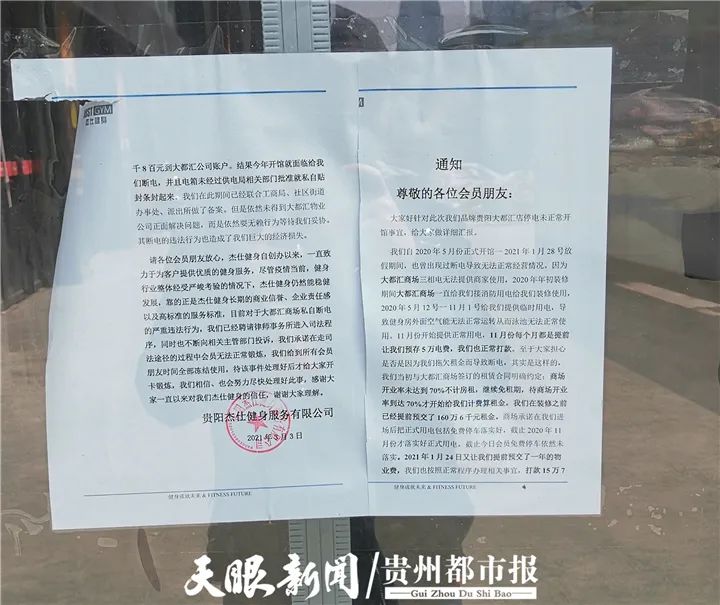 通知
尊敬的各位会员朋友：
大家好针对此次我们品牌贵阳大都汇店停电未正常开
馆事宜，给大家做详细汇报。
我们自 2020 年 5 月份正式开馆－2021 年 1 月 28 号放
假期间，也曾出现过断电导致无法正常经营情况。因为
大都汇商场三相电无法提供商家使用。2020 年年初装修
期间大都汇商场一直给我们接消防用电给我们装修使用，
2020 年 5 月 12 号－11 月 1 号给我们提供临时用电，导
致健身房外面空气能无法正常运转从而泳池无法正常使
用。11 月份开始提供正常用电，11 月份每个月都是提前
让我们预存 5 万电费，我们也正常打款。至于大家担心
是否是因为我们拖欠租金而导致断电，其实是这样的，
我们当初与大都汇商场签订的租赁合同明确约定：商场
开业率未达到 70%不计房租，继续免租期，待商场开业率
达到 70%才开始给我们计费算租金。我们在装修之前
已经提前预交了 160 万 6 千元租金。商场承诺在我们进
场后把正式用电包括免费停车落实好，截止 2020 年 11
月份才落实好正式用电，截止今日会员免费停车依然未
落实。2021 年 1 月 24 日又让我们提前预交了一年的物
业费，我们也按照正常程序办理相关事宜，打款 15 万 7
健身成就未来 & FITNESS FUTURE
GYM
千 8 百元到大都汇公司账户。结果今年开馆就面临给我
们断电，并且电箱未经过供电局相关部门批准就私自贴
封条封起来。我们在此期间已经联合工商局、社区街道
办事处、派出所做了备案。但是依然未得到大都汇物业
公司正面解决问题，而是依然耍无赖行为等待我们妥协。
其断电的违法行为也造成了我们巨大的经济损失。
请各位会员朋友放心，杰仕健身自创办以来，一直致
力于为客户提供优质的健身服务，尽管疫情当前，健身
行业整体经受严峻考验的情况下，杰仕健身仍然能稳健
发展，靠的正是杰仕健身长期的商业信誉、企业责任感
以及高标准的服务标准，目前对于大都汇商场私自断电
的严重违法行为，我们已经聘请律师事务所进入司法程
序，同时也不断向相关主管部门投诉，我们承诺在走司
法途径的过程中会员无法正常锻炼，我们给到所有会员
朋友时间全部冻结使用，待该事件处理好后给大家开
卡锻炼。我们相信、也会努力尽快处理好此事，感谢大
家一直以来对我们杰仕健身的信任，谢谢大家理解。
贵阳杰仕健身服务有限公司
2021 年 3 月 3 日
健身成就未来 & FITNESS FUTURE
天眼新闻/贵州都市报
Gui Zhou Du Shi Bao